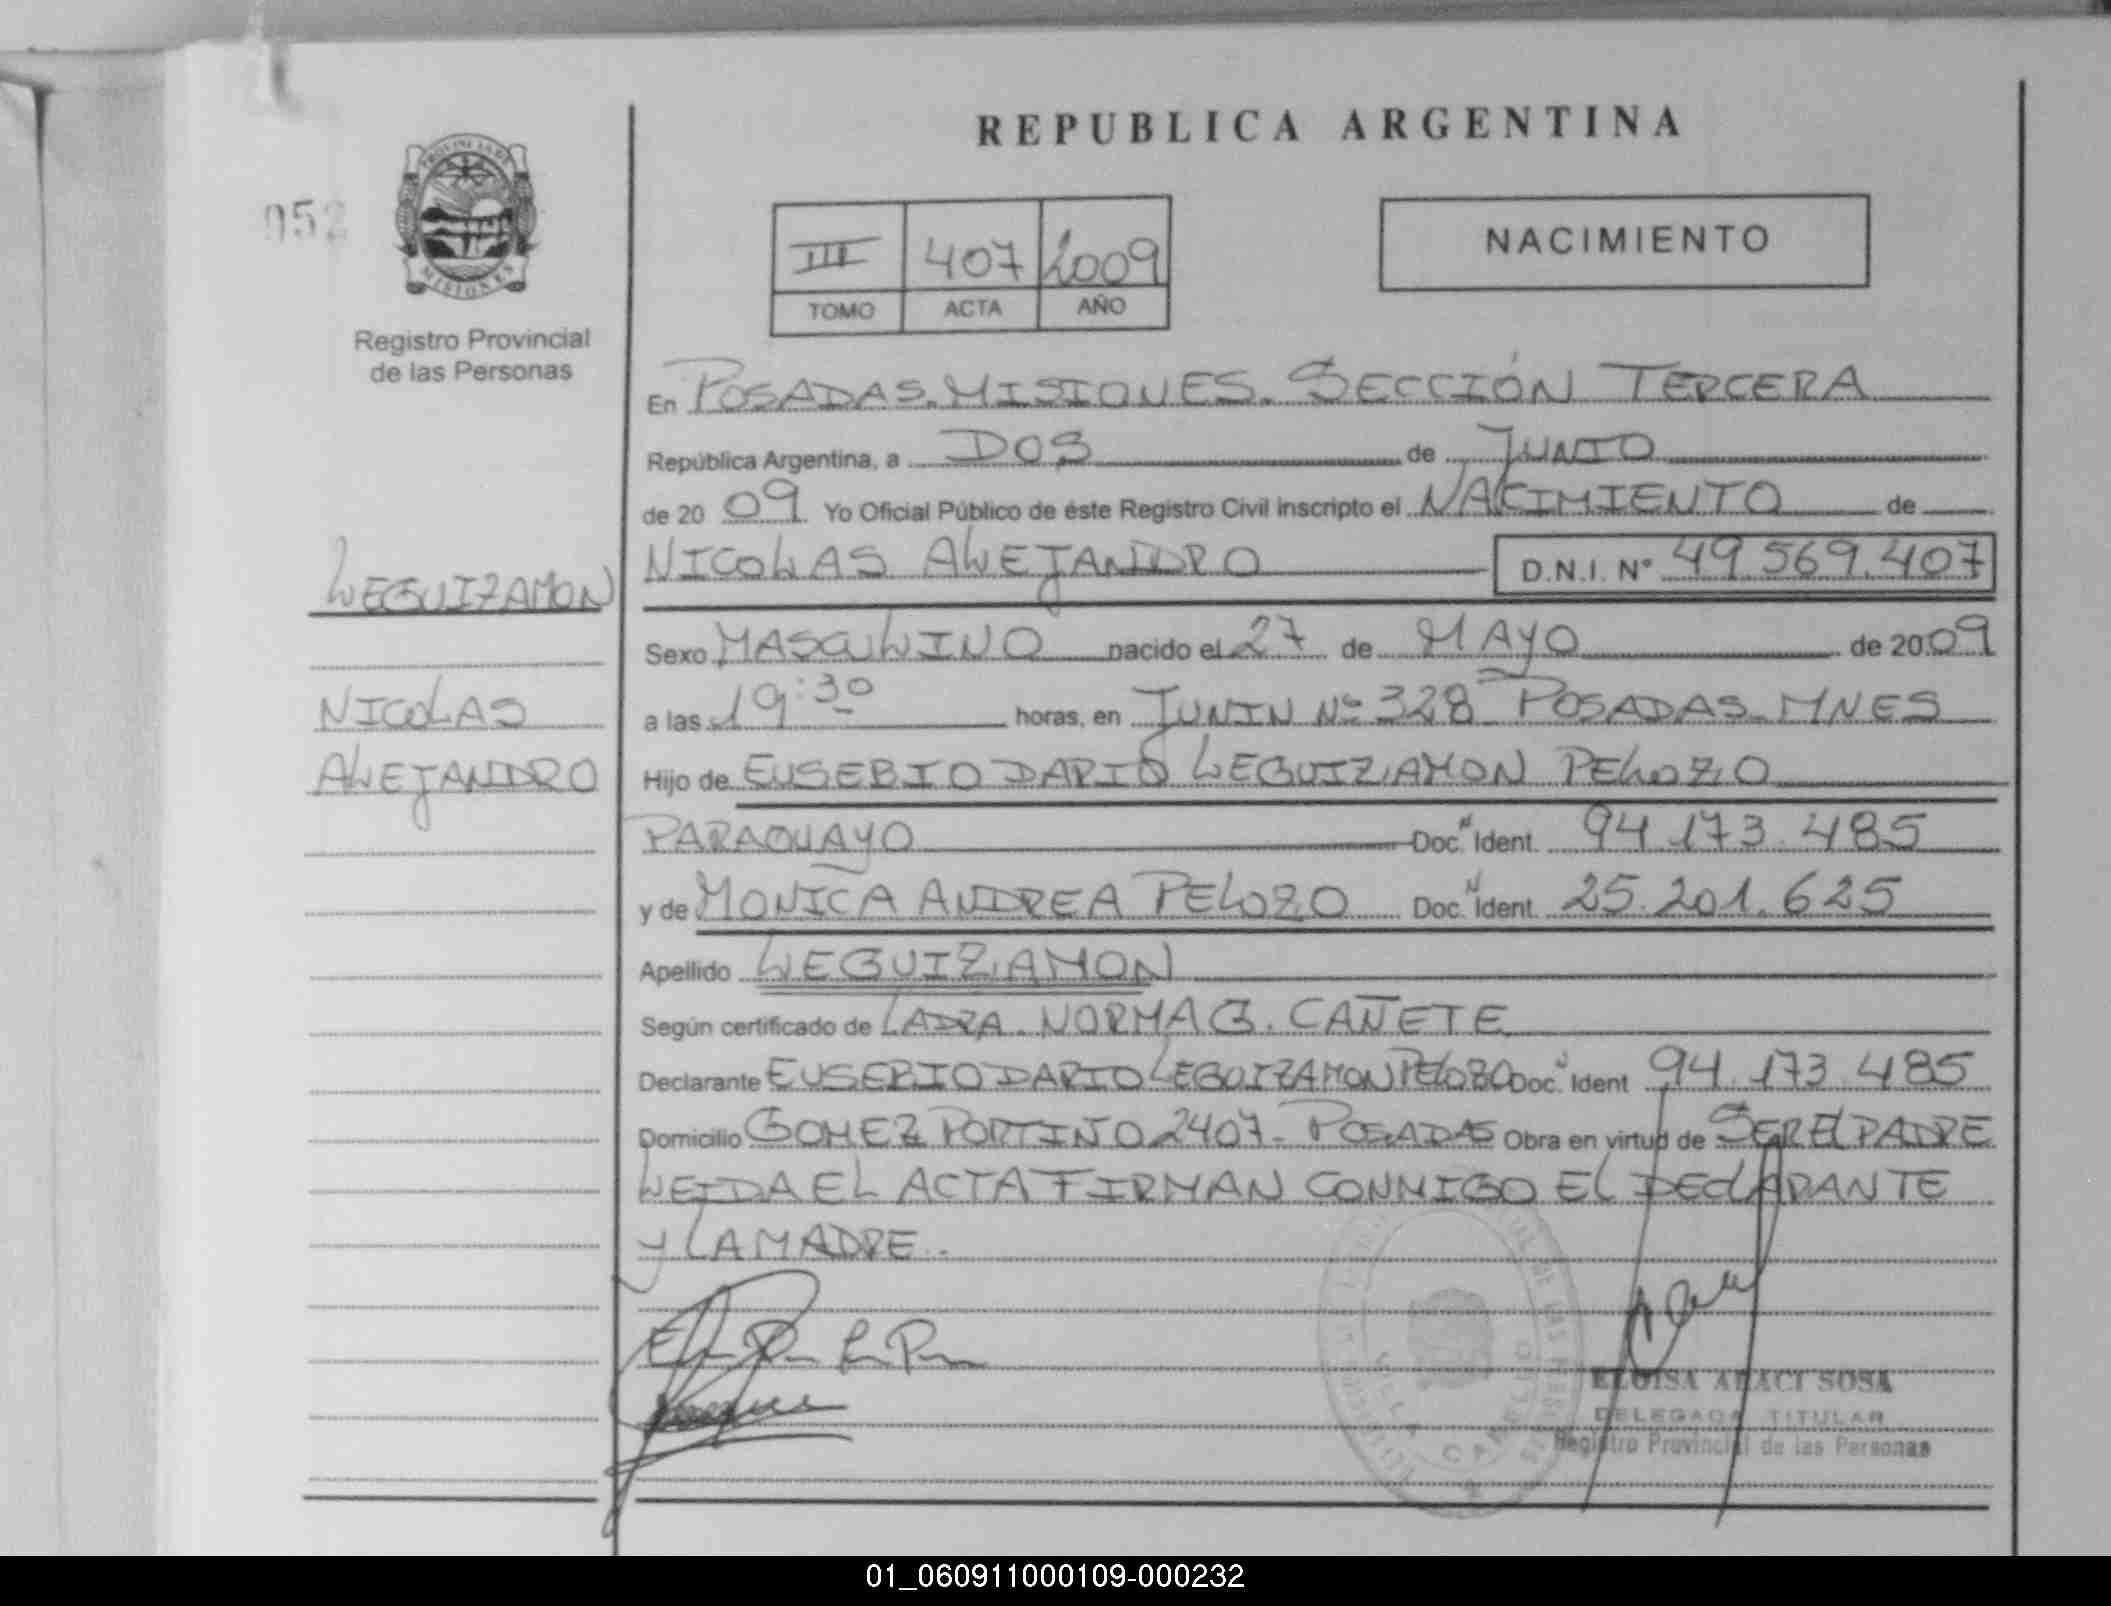 REPUBLICA ARGENTINA
052
PROVINCIA DE
MISIONES
Registro Provincial
de las Personas
III 407 2009
TOMO ACTA AÑO
NACIMIENTO
En POSADAS. MISIONES. SECCIÓN TERCERA
República Argentina, a DOS de JUNIO
de 20 09 Yo Oficial Público de éste Registro Civil inscripto el NACIMIENTO de
NICOLAS ALEJANDRO D.N.I. N° 49.569.407
LEGUIZAMON
NICOLAS
ALEJANDRO
Sexo MASCULINO nacido el 27 de MAYO de 20 09
a las 19:30 horas, en JUNIN Nº 328 POSADAS. MNES
Hijo de EUSEBIO DARIO LEGUIZAMON PELOZO
PARAGUAYO Doc. N Ident. 94.173.485
y de MONICA ANDREA PELOZO Doc. N Ident. 25.201.625
Apellido LEGUIZAMON
Según certificado de LADRA. NORMA G. CAÑETE
Declarante EUSEBIO DARIO LEGUIZAMON PELOZO Doc. Ident 94.173.485
Domicilio GOMEZ PORTIÑO 2407- POSADAS Obra en virtud de SER EL PADRE
LEIDA EL ACTA FIRMAN CONMIGO EL DECLARANTE
Y LA MADRE.
ELOISA ARACI SOSA
DELEGADA TITULAR
Registro Provincial de las Personas
01_060911000109-000232